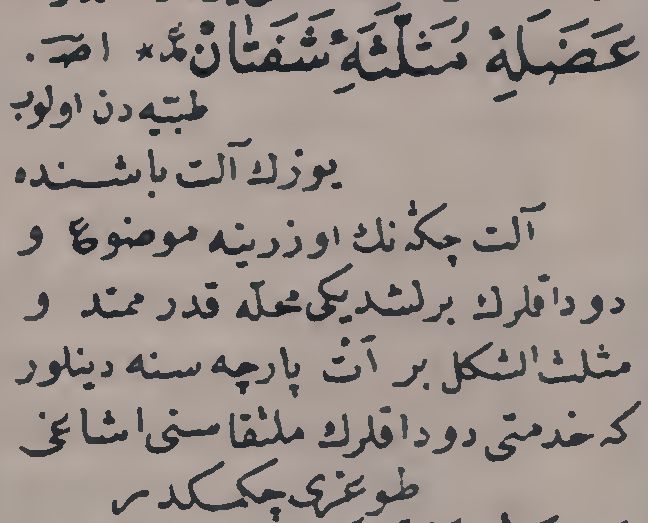 عَضَلَهِٔ مُثَلَّثَهِٔ شَفَتَانْ ﴿* اصـ .
طبيه دن اولوب
يوزك آلت باشنده
آلت چكه نك اوزرينه موضوع و
دوداقلرك برلشديكى محله قدر ممتد و
مثلث الشكل بر آت پارچه سنه دينلور
كه خدمتى دوداقلرك ملتقاسنى اشاغى
طوغرى چكمكدر